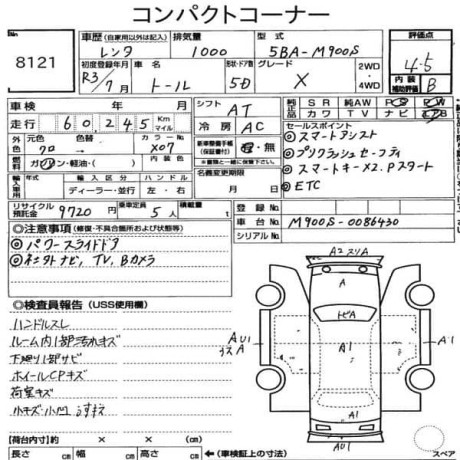 コンパクトコーナー
8121
車歴(自家用以外は記入) レンタ
排気量 1000
型式 5BA-M900S
評価点 4.5
初度登録年月 R3/7月
車名 トール
形状・ドア数 5D
グレード X
2WD・4WD
内装補助評価 B
車検 年 月
シフト AT
純正品 SR 純AW PS PW
カワ TV ナビ エアB
走行 60,245 Km マイル
冷房 AC
セールスポイント
◎スマートアシスト
◎プリクラッシュセーフティ
◎スマートキー×2. Pスタート
◎ETC
外色 元色 クロ 色替 → カラーNo X07
燃料 ガソリン・軽油・( )
整備手帳 有・無
輸入車用 年式 輸入区分 ディーラー・並行 ハンドル 左・右
名義変更期限 月 日
リサイクル預託金 9720円
乗車定員 5人
積載量 t
登録No.
車台No. M900S-0086430
シリアルNo.
◎注意事項(修復・不具合箇所および状態等)
◎パワースライドドア
◎キンタトナビ, TV, Bカメラ
◎検査員報告(USS使用欄)
ハンドルスレ
ルーム内1部汚れキズ
下廻り1部サビ
ホイールCPキズ
荷室キズ
小キズ・小凹
A2 スリA
A
トビA
AU1
A1
A1
A1
AU1
スペア
[荷台内寸]約 × × (cm)
長さ cm 幅 cm 高さ cm
←(車検証上の寸法)